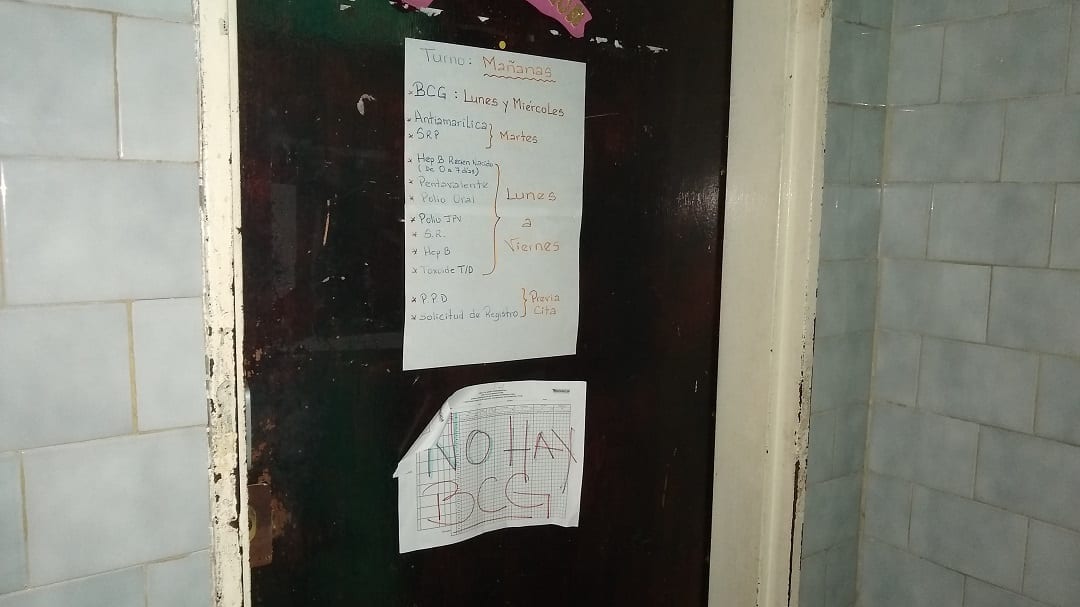 Turno: Mañanas
* BCG : Lunes y Miércoles
* Antiamarilica
* SRP
} Martes
* Hep B Recien Nacido
(De 0 a 7 días)
* Pentavalente
* Polio Oral
* Polio IPV
* S.R.
* Hep B
* Toxoide T/D
} Lunes
a
Viernes
* P.P.D
* Solicitud de Registro
} Previa
Cita
NO HAY
BCG